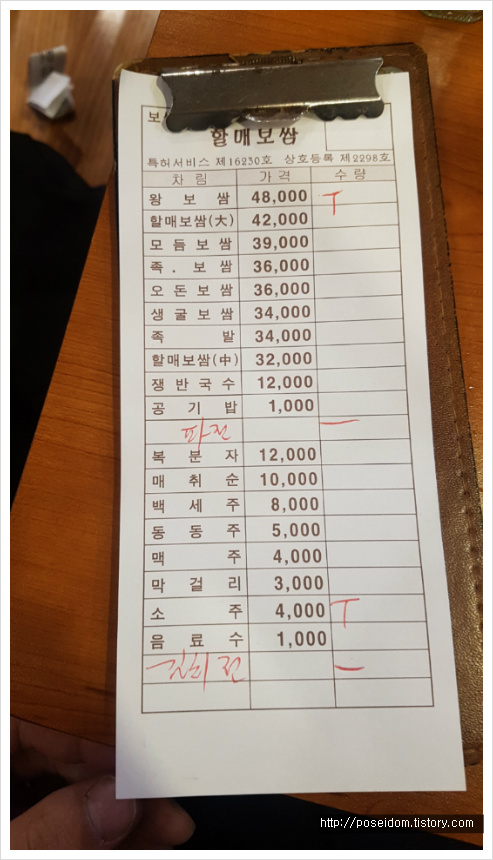 보
할매보쌈
특허서비스 제16230호 상호등록 제2298호
차림 가격 수량
왕보쌈 48,000 T
할매보쌈(大) 42,000
모듬보쌈 39,000
족.보쌈 36,000
오돈보쌈 36,000
생굴보쌈 34,000
족발 34,000
할매보쌈(中) 32,000
쟁반국수 12,000
공기밥 1,000
파전 一
복분자 12,000
매취순 10,000
백세주 8,000
동동주 5,000
맥주 4,000
막걸리 3,000
소주 4,000 T
음료수 1,000
김치전 一
http://poseidom.tistory.com